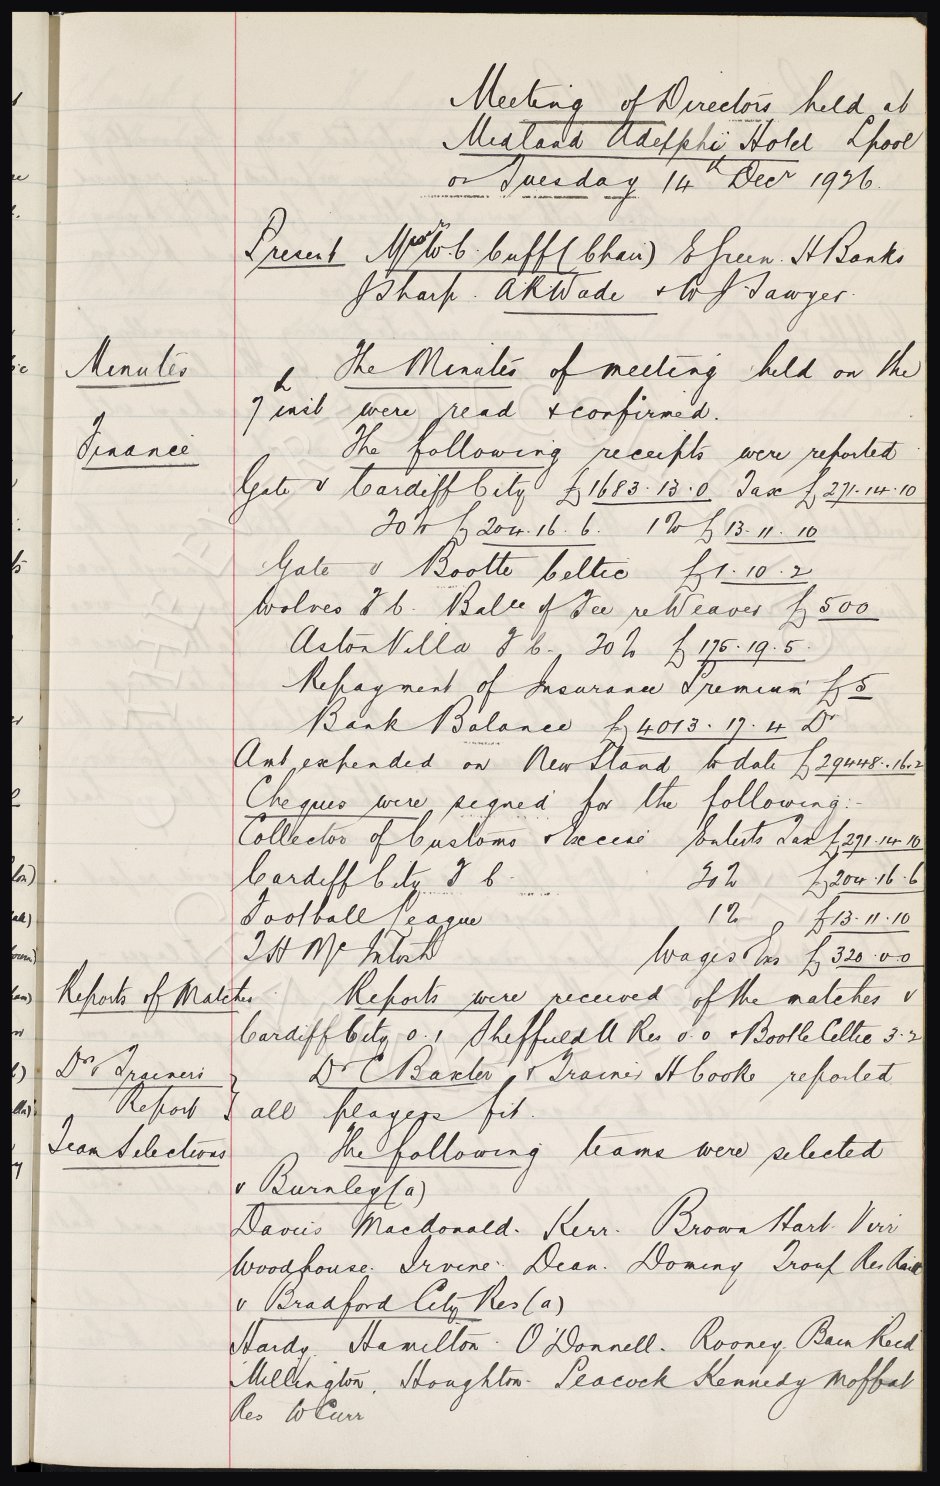 Meeting of Directors held at
Midland Adelphi Hotel Lpool
on Tuesday 14th Decr 1926.
Present Messrs W. C. Cuff (Chair) E Green. H Banks
J Sharp. A R Wade & W J Sawyer.
Minutes The Minutes of meeting held on the
7th inst were read & confirmed.
Finance The following receipts were reported
Gate v Cardiff City £1683.13.0 Tax £271.14.10
20% £204.16.6. 1% £13.11.10
Gate v Bootle Celtic £1.10.2
Wolves F C. Balce of Fee re Weaver £500
Aston Villa F C. 20% £175.19.5.
Repayment of Insurance Premium £5
Bank Balance £4013.17.4 Dr
Amt expended on New Stand to date £29448.16.2
Cheques were signed for the following:-
Collector of Customs & Excise Entents Tax £271.14.10
Cardiff City F C. 20% £204.16.6
Football League 1% £13.11.10
T H McIntosh Wages Exs £320.0.0
Reports of Matches Reports were received of the matches v
Cardiff City 0.1 Sheffield U Res 0.0 & Bootle Celtic 3.2
Drs & Trainers Dr C Baxter & Trainer H Cooke reported
Report } all players fit.
Team Selections The following teams were selected
v Burnley (a)
Davies Macdonald. Kerr. Brown Hart. Virr
Woodhouse. Irvine. Dean. Dominy Troup Res Raitt
v Bradford City Res (a)
Hardy. Hamilton. O'Donnell. Rooney. Bain Reid
Millington. Houghton. Peacock Kennedy Moffat
Res W Curr